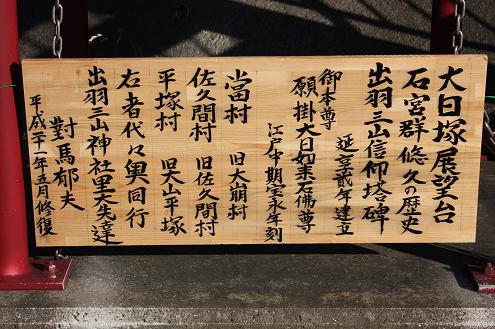 大日塚展望台
石宮群悠久の歴史
出羽三山信仰塔碑
延享貳年建立
御本尊
願掛大日如来石佛尊
江戸中期宝永年刻
當村 旧大崩村
佐久間村 旧佐久間村
平塚村 旧大山平塚
右者代口輿同行
出羽三山神社里先達
對馬郁夫
平成二十一年五月修復